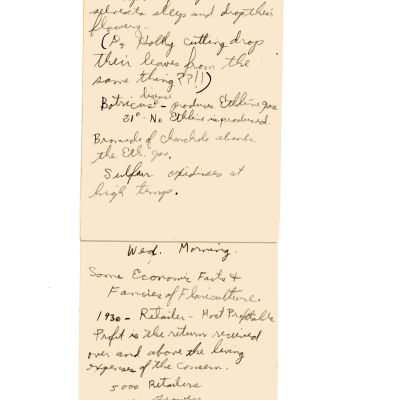 to sleep and drop their
flowers.
(Do Holly cutting drop
their leaves from the
same thing??!!)
disease
Botricus - produces Ethline gas
31° - No Ethline is produced.
Bromide of charchols absorbs
the Eth. gas.
Sulfur oxidises at
high temps.
Wed. Morning.
Some Economic Facts +
Fancies of Floriculture.
1930 - Retailer - Most Profitable
Profit is the return received
over and above the living
expenses of the concern.
5000 Retailers